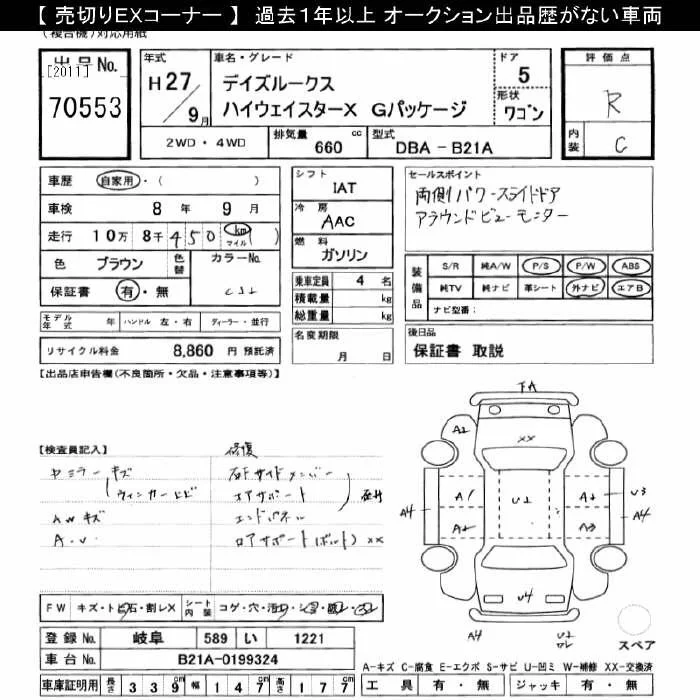 【 売切りEXコーナー 】 過去1年以上 オークション出品歴がない車両
(複合機)対応用紙
出品No.
[2011]
70553
年式
H27/9月
車名・グレード
デイズルークス
ハイウェイスターX Gパッケージ
ドア
5
形状
ワゴン
評価点
R
内装
C
2WD・4WD
排気量 660 cc
型式 DBA-B21A
車歴 自家用・( )
車検 8年 9月
走行 10万 8千 450 km マイル( )
色 ブラウン 色替 カラーNo.
保証書 有・無
シフト
IAT
冷房
AAC
燃料
ガソリン
乗車定員 4 名
積載量 kg
総重量 kg
セールスポイント
両側パワースライドドア
アラウンドビューモニター
装備品
S/R 純A/W P/S P/W ABS
純TV 純ナビ 革シート 外ナビ エアB
ナビ型番:
モデル年式 年 ハンドル 左・右 ディーラー・並行
リサイクル料金 8,860 円 預託済
名変期限
月 日
後日品
保証書 取説
【出品店申告欄(不良箇所・欠品・注意事項等)】
【検査員記入】
修復
ミラーキズ
ウィンカーヒビ
AWキズ
A・U
右Fサイドメンバー
コアサポート
エンドパネル
ロアサポート(ボルト) XX
FA
A2
XX
A1
U2
A2
U3
A4
A2
A3
A4
U4
A4
U2
スペア
FW キズ・トビ石・割レX シート内装 コゲ・穴・
登録No. 岐阜 589 い 1221
車台No. B21A-0199324
車庫証明用 長さ 339cm 幅 147cm 高さ 177cm
A-キズ C-腐食 E-エクボ S-サビ U-凹ミ W-補修 XX-交換済
工具 有・無 ジャッキ 有・無